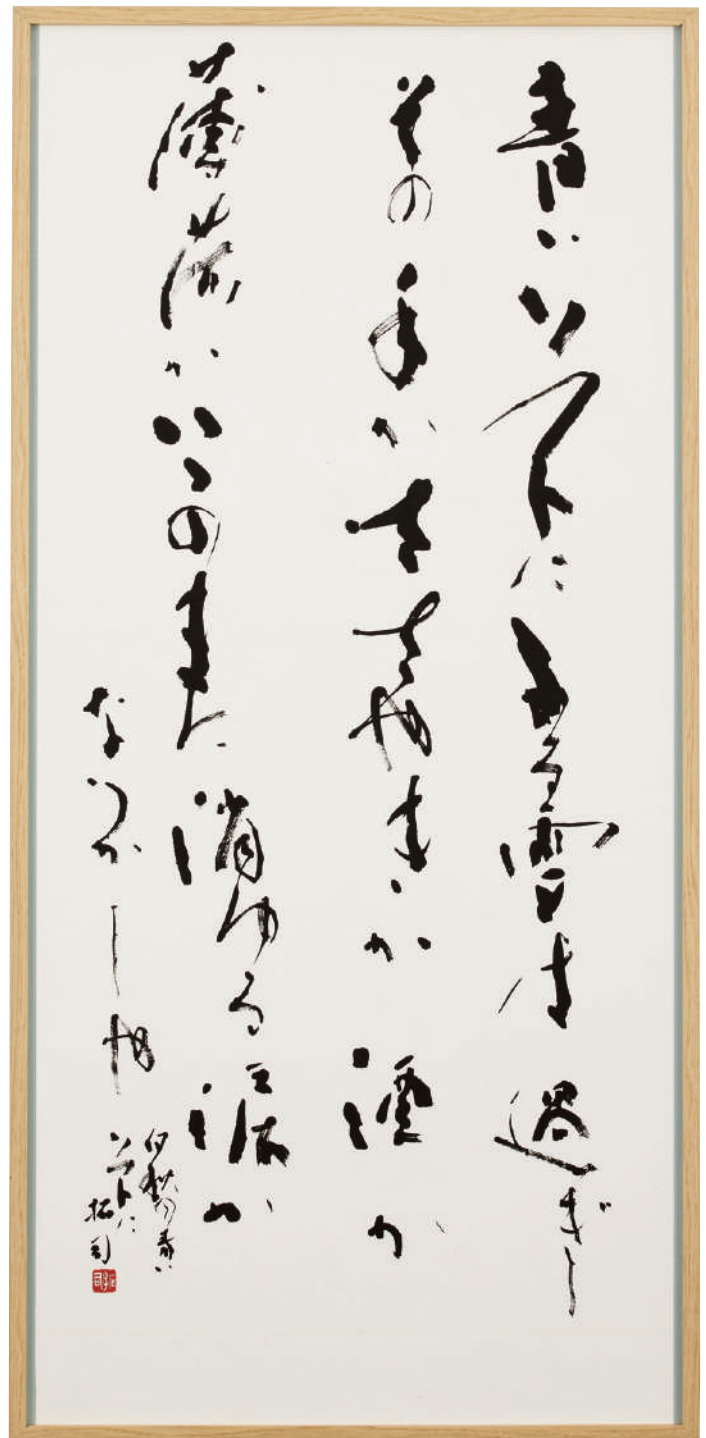 青いソフトにふる雪は過ぎし
その手かささやきか酒か
薄荷かいつのまに消ゆる涙か
なつかしや
白秋の青い
ソフトに
拓司